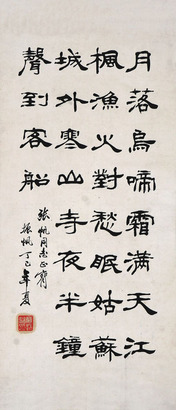 月落烏啼霜滿天江
楓漁火對愁眠姑蘇
城外寒山寺夜半鐘
聲到客船
同志正
丁巳年夏